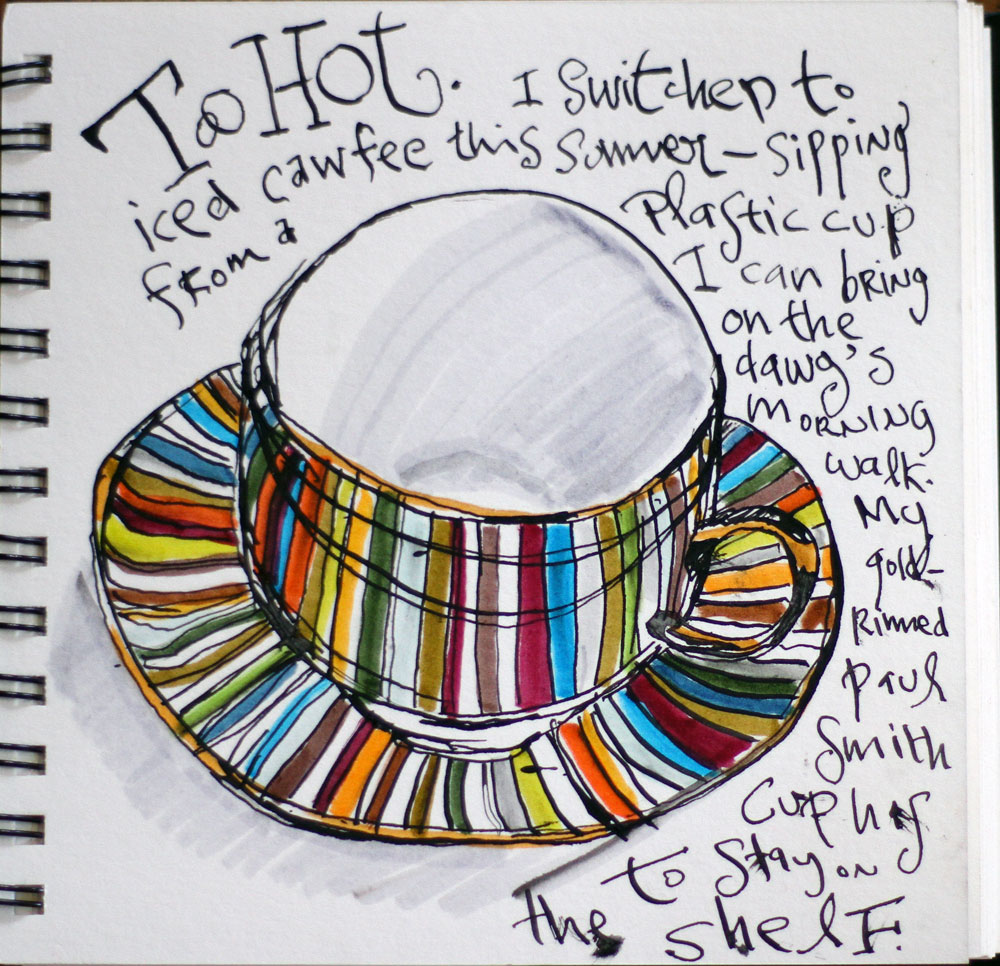 Too Hot. I switched to
iced cawfee this summer – sipping
from a plastic cup
I can bring
on the
dawg's
morning
walk.
My
gold-
Rimmed
Paul
Smith
Cup has
to stay on
the shelf.